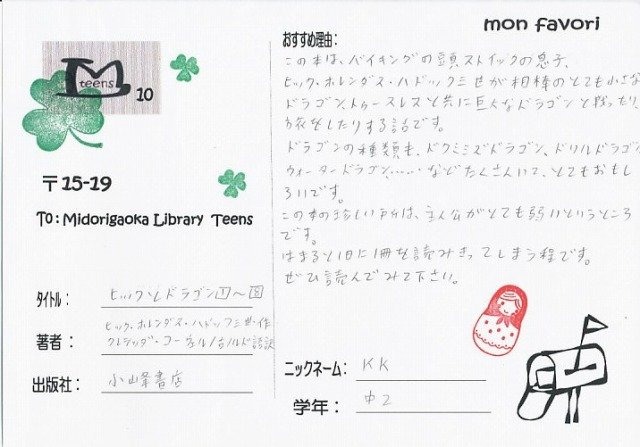 mon favori
teens
10
〒15-19
To: Midorigaoka Library Teens
タイトル:
ヒックとドラゴン①~⑧
著者:
ヒック・ホレンダス・ハドック三世・作
クレシッダ・コーエル/相良倫子・訳
出版社:
小峰書店
おすすめ理由:
この本は、バイキングの頭ストイックの息子、
ヒック・ホレンダス・ハドック三世が相棒のとても小さな
ドラゴン、トゥースレスと共に巨大なドラゴンと戦ったり、
旅をしたりする話です。
ドラゴンの種類も、ドクミミズドラゴン、ドリルドラゴン
ウォータードラゴン、……などたくさんいて、とてもおもし
ろいです。
この本の珍しい所は、主人公がとても弱いというところ
です。
はまると1日に1冊を読みきってしまう程です。
ぜひ読んでみて下さい。
ニックネーム:
KK
学年:
中2